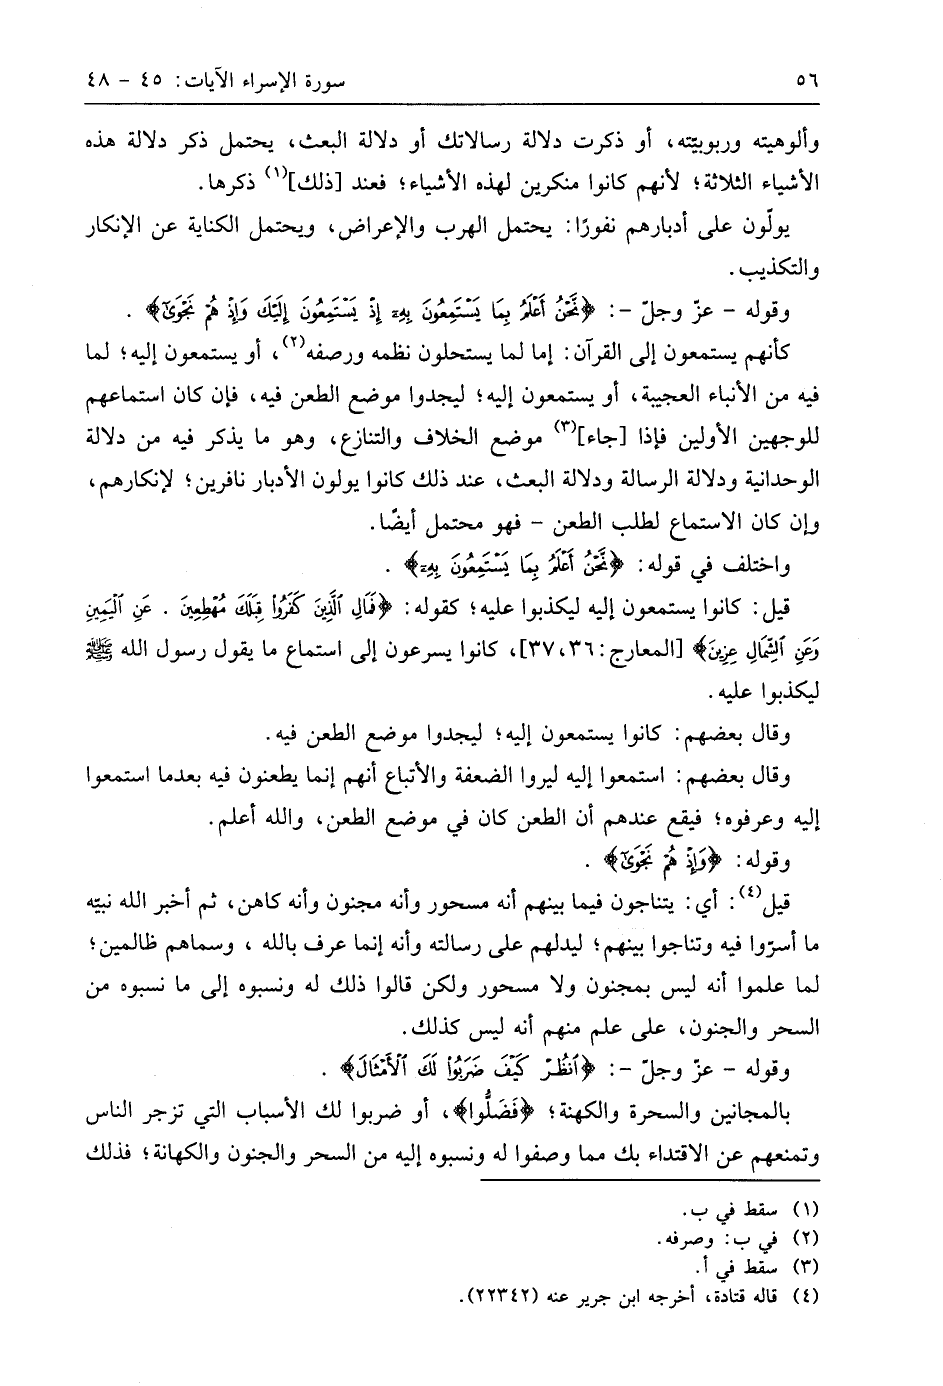 ٥٦ سورة الإسراء الآيات: ٤٥ - ٤٨
وألوهيته وربوبيّته، أو ذكرت دلالة رسالاتك أو دلالة البعث، يحتمل ذكر دلالة هذه
الأشياء الثلاثة؛ لأنهم كانوا منكرين لهذه الأشياء؛ فعند [ذلك](١) ذكرها.
يولّون على أدبارهم نفورًا: يحتمل الهرب والإعراض، ويحتمل الكناية عن الإنكار
والتكذيب.
وقوله - عزّ وجلّ -: ﴿نَّحْنُ أَعْلَمُ بِمَا يَسْتَمِعُونَ بِهِۦٓ إِذْ يَسْتَمِعُونَ إِلَيْكَ وَإِذْ هُمْ نَجْوَىٰٓ﴾ .
كأنهم يستمعون إلى القرآن: إما لما يستحلون نظمه ورصفه(٢)، أو يستمعون إليه؛ لما
فيه من الأنباء العجيبة، أو يستمعون إليه؛ ليجدوا موضع الطعن فيه، فإن كان استماعهم
للوجهين الأولين فإذا [جاء](٣) موضع الخلاف والتنازع، وهو ما يذكر فيه من دلالة
الوحدانية ودلالة الرسالة ودلالة البعث، عند ذلك كانوا يولون الأدبار نافرين؛ لإنكارهم،
وإن كان الاستماع لطلب الطعن - فهو محتمل أيضًا.
واختلف في قوله: ﴿نَّحْنُ أَعْلَمُ بِمَا يَسْتَمِعُونَ بِهِۦٓ﴾ .
قيل: كانوا يستمعون إليه ليكذبوا عليه؛ كقوله: ﴿فَمَالِ ٱلَّذِينَ كَفَرُوا۟ قِبَلَكَ مُهْطِعِينَ . عَنِ ٱلْيَمِينِ
وَعَنِ ٱلشِّمَالِ عِزِينَ﴾ [المعارج: ٣٦، ٣٧]، كانوا يسرعون إلى استماع ما يقول رسول الله ﷺ
ليكذبوا عليه.
وقال بعضهم: كانوا يستمعون إليه؛ ليجدوا موضع الطعن فيه.
وقال بعضهم: استمعوا إليه ليروا الضعفة والأتباع أنهم إنما يطعنون فيه بعدما استمعوا
إليه وعرفوه؛ فيقع عندهم أن الطعن كان في موضع الطعن، والله أعلم.
وقوله: ﴿وَإِذْ هُمْ نَجْوَىٰٓ﴾ .
قيل(٤): أي: يتناجون فيما بينهم أنه مسحور وأنه مجنون وأنه كاهن، ثم أخبر الله نبيّه
ما أسرّوا فيه وتناجوا بينهم؛ ليدلهم على رسالته وأنه إنما عرف بالله ، وسماهم ظالمين؛
لما علموا أنه ليس بمجنون ولا مسحور ولكن قالوا ذلك له ونسبوه إلى ما نسبوه من
السحر والجنون، على علم منهم أنه ليس كذلك.
وقوله - عزّ وجلّ -: ﴿ٱنظُرْ كَيْفَ ضَرَبُوا۟ لَكَ ٱلْأَمْثَالَ﴾ .
بالمجانين والسحرة والكهنة؛ ﴿فَضَلُّوا﴾، أو ضربوا لك الأسباب التي تزجر الناس
وتمنعهم عن الاقتداء بك مما وصفوا له ونسبوه إليه من السحر والجنون والكهانة؛ فذلك
(١) سقط في ب.
(٢) في ب: وصرفه.
(٣) سقط في أ.
(٤) قاله قتادة، أخرجه ابن جرير عنه (٢٢٣٤٢).